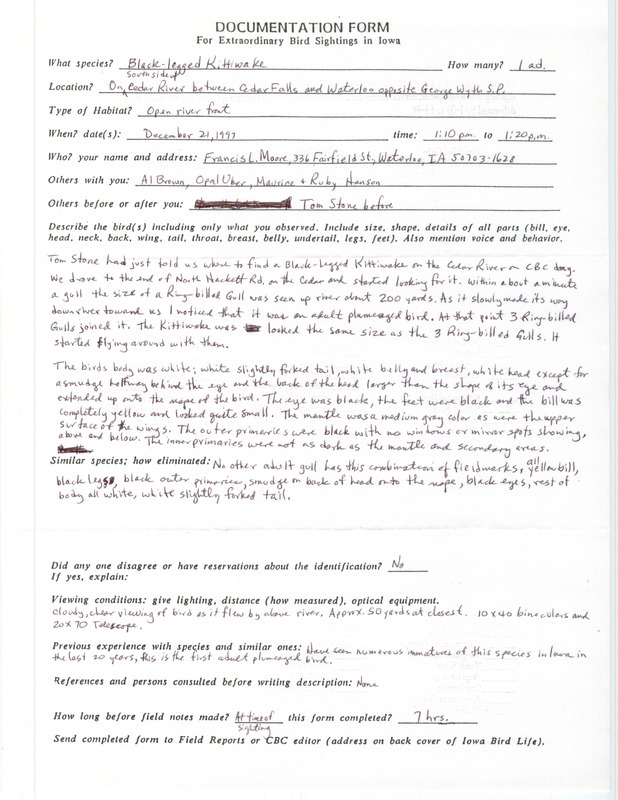 DOCUMENTATION FORM
For Extraordinary Bird Sightings in Iowa
What species? Black-legged Kittiwake How many? 1 ad.
Location? On south side of Cedar River between Cedar Falls and Waterloo opposite George Wyth S.P.
Type of Habitat? Open river front
When? date(s): December 21, 1997 time: 1:10 pm to 1:20 p.m.
Who? your name and address: Francis L. Moore, 336 Fairfield St., Waterloo, IA 50703-1628
Others with you: Al Brown, Opal Uber, Maurine + Ruby Hanson
Others before or after you: Tom Stone before
Describe the bird(s) including only what you observed. Include size, shape, details of all parts (bill, eye,
head, neck, back, wing, tail, throat, breast, belly, undertail, legs, feet). Also mention voice and behavior.
Tom Stone had just told us where to find a Black-legged Kittiwake on the Cedar River on CBC day.
We drove to the end of North Hackett Rd. on the Cedar and started looking for it. Within about a minute
a gull the size of a Ring-billed Gull was seen up river about 200 yards. As it slowly made its way
downriver toward us I noticed that it was an adult plumaged bird. At that point 3 Ring-billed
Gulls joined it. The Kittiwake was looked the same size as the 3 Ring-billed Gulls. It
started flying around with them.
The birds body was white; white slightly forked tail, white belly and breast, white head except for
a smudge halfway behind the eye and the back of the head larger than the shape of its eye and
extended up onto the nape of the bird. The eye was black, the feet were black and the bill was
completely yellow and looked quite small. The mantle was a medium gray color as were the upper
surface of the wings. The outer primaries were black with no windows or mirror spots showing,
above and below. The inner primaries were not as dark as the mantle and secondary areas.
Similar species; how eliminated: No other adult gull has this combination of fieldmarks, all yellow bill,
black legs, black outer primaries, smudge on back of head onto the nape, black eyes, rest of
body all white, white slightly forked tail.
Did any one disagree or have reservations about the identification? No
If yes, explain:
Viewing conditions: give lighting, distance (how measured), optical equipment.
cloudy, clear viewing of bird as it flew by above river. Approx. 50 yards at closest. 10x40 binoculars and
20x70 Telescope.
Previous experience with species and similar ones: Have seen numerous immatures of this species in Iowa in
the last 20 years, this is the first adult plumaged bird.
References and persons consulted before writing description: None
How long before field notes made? At time of sighting this form completed? 7 hrs.
Send completed form to Field Reports or CBC editor (address on back cover of Iowa Bird Life).